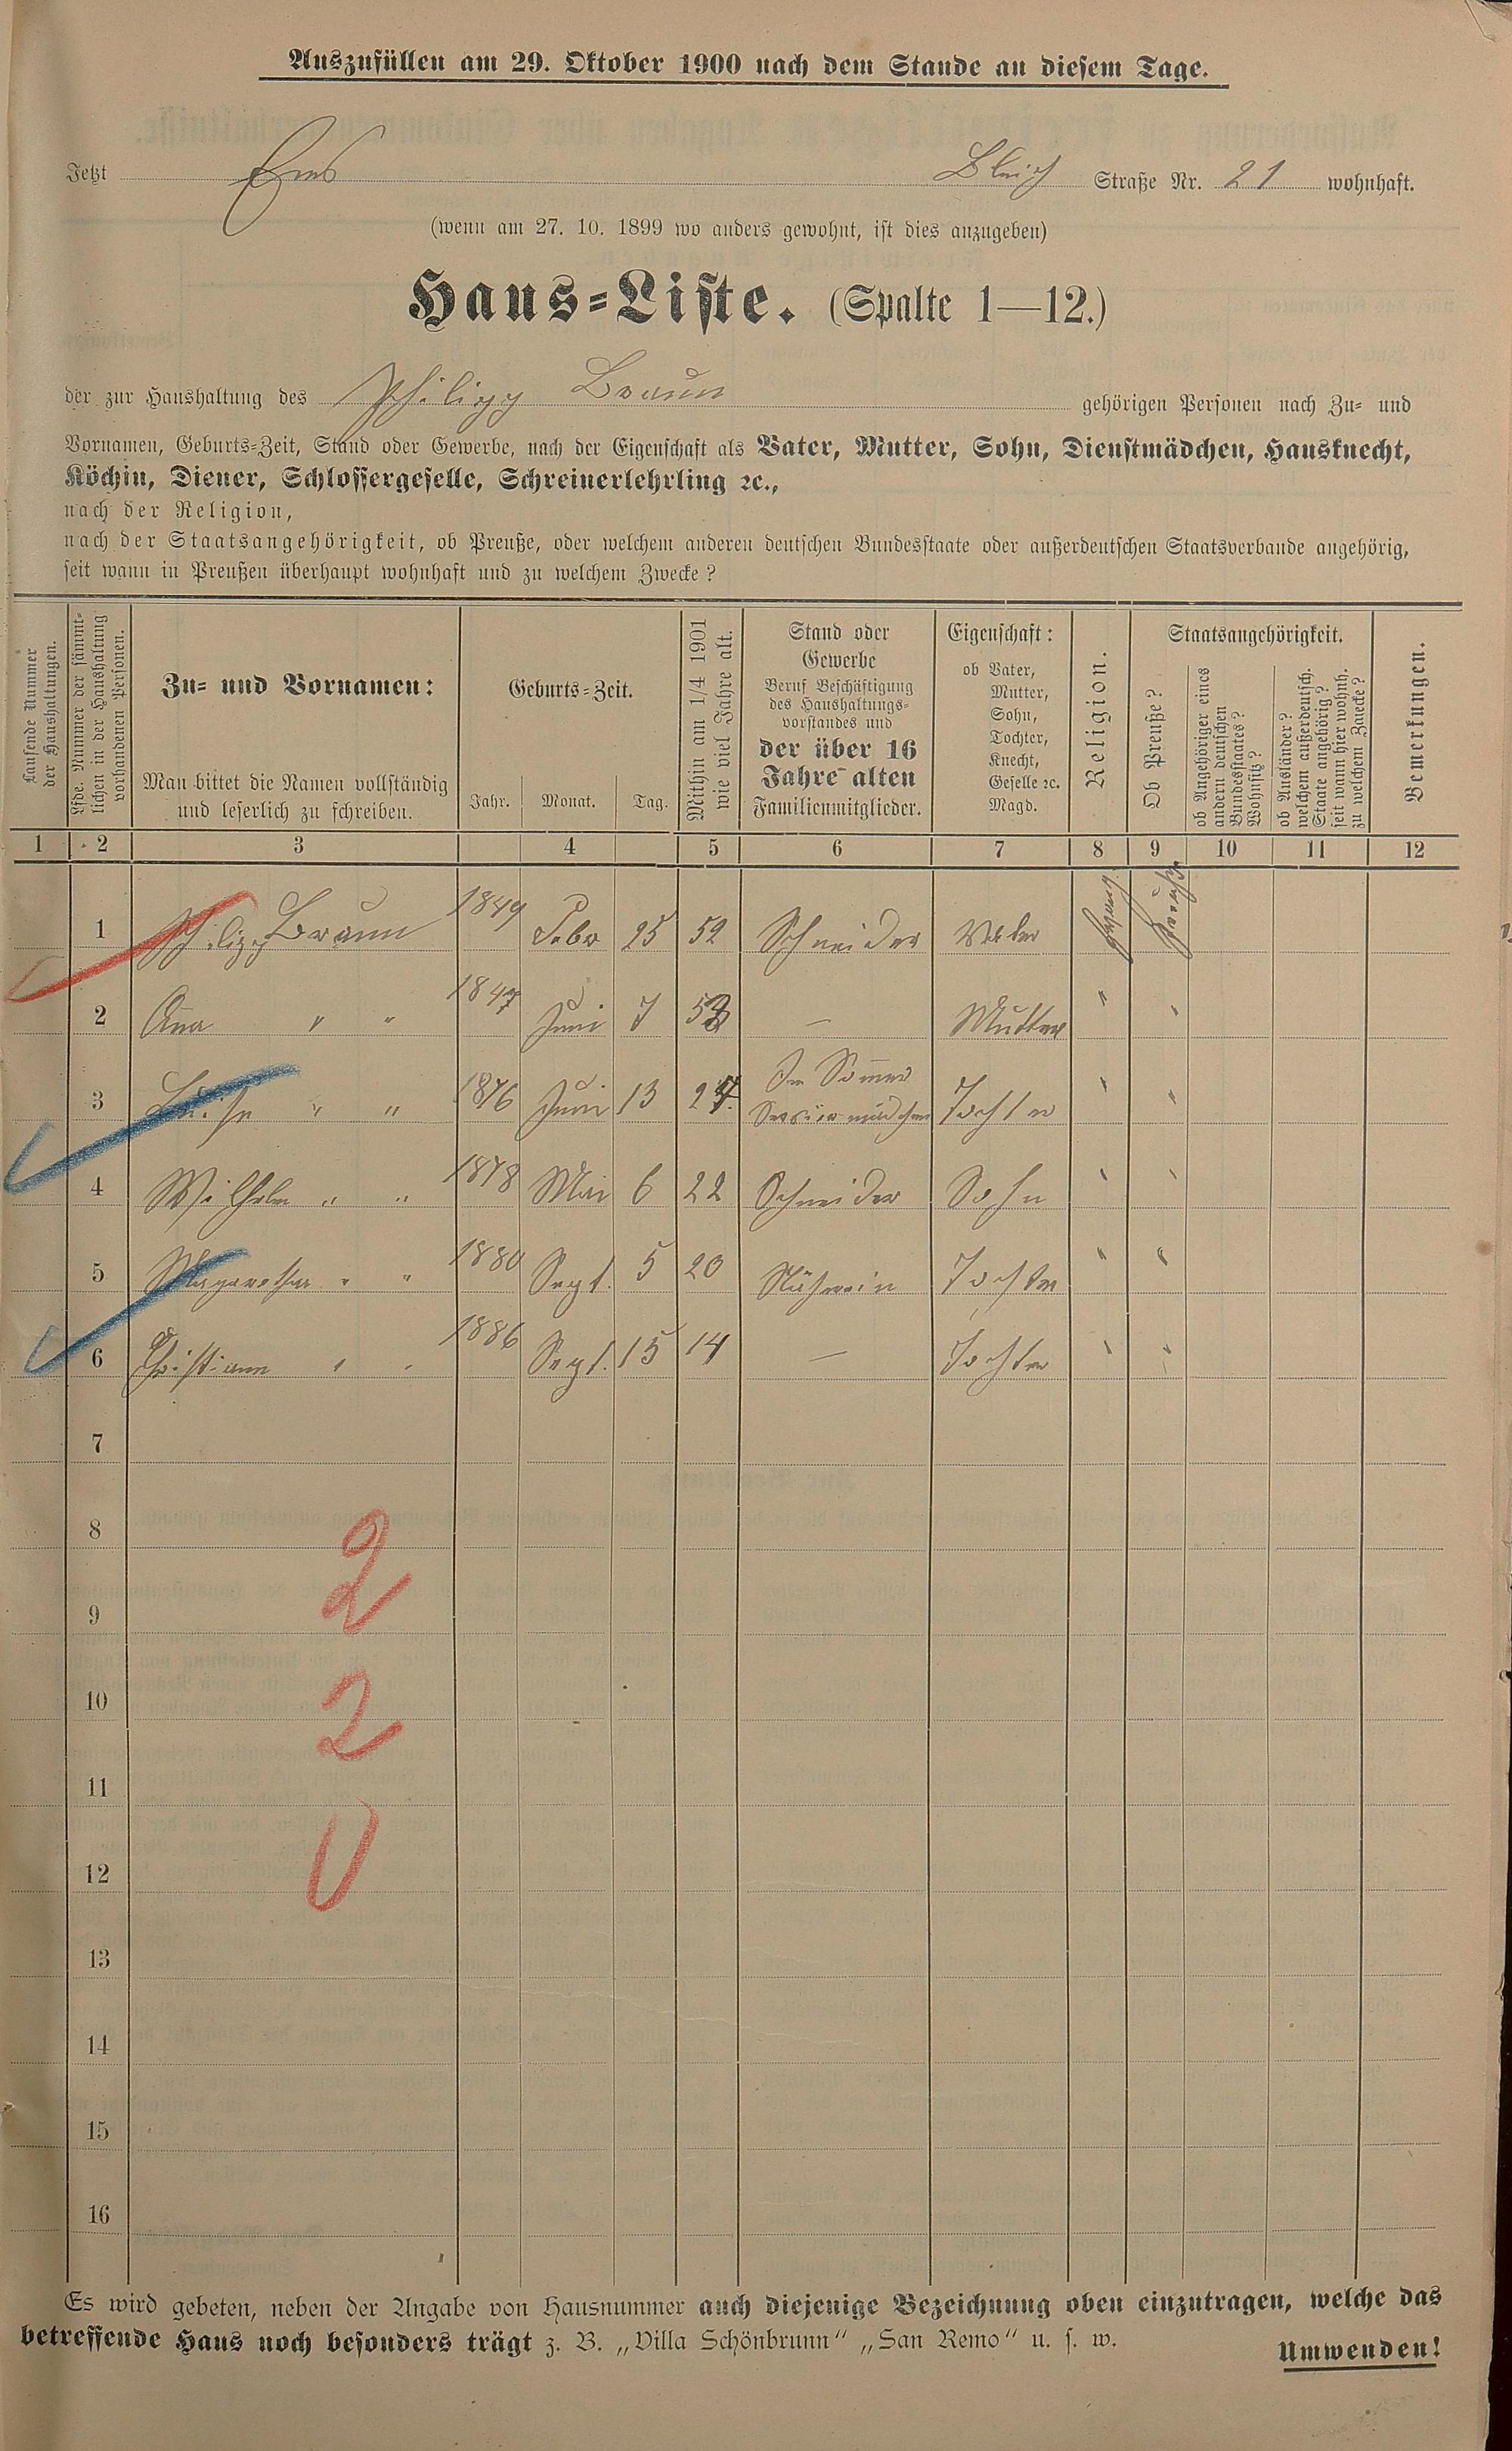 Auszufüllen am 29. Oktober 1900 nach dem Stande an diesem Tage.
Jetzt Ems Bleich Straße Nr. 21 wohnhaft.
(wenn am 27. 10. 1899 wo anders gewohnt, ist dies anzugeben)
Haus-Liste. (Spalte 1—12.)
der zur Haushaltung des Philipp Braun gehörigen Personen nach Zu- und
Vornamen, Geburts-Zeit, Stand oder Gewerbe, nach der Eigenschaft als Vater, Mutter, Sohn, Dienstmädchen, Hausknecht,
Köchin, Diener, Schlossergeselle, Schreinerlehrling ꝛc.,
nach der Religion,
nach der Staatsangehörigkeit, ob Preuße, oder welchem anderen deutschen Bundesstaate oder außerdeutschen Staatsverbande angehörig,
seit wann in Preußen überhaupt wohnhaft und zu welchem Zwecke?
Laufende Nummer
der Haushaltungen.
Lfde. Nummer der sämmt-
lichen in der Haushaltung
vorhandenen Personen.
Zu- und Vornamen:
Man bittet die Namen vollständig
und leserlich zu schreiben.
Geburts-Zeit.
Jahr. Monat. Tag.
Mithin am 1/4 1901
wie viel Jahre alt.
Stand oder
Gewerbe
Beruf Beschäftigung
des Haushaltungs-
vorstandes und
der über 16
Jahre alten
Familienmitglieder.
Eigenschaft:
ob Vater,
Mutter,
Sohn,
Tochter,
Knecht,
Geselle ꝛc.
Magd.
Religion.
Staatsangehörigkeit.
Ob Preuße?
ob Angehöriger eines
andern deutschen
Bundesstaates?
Wohnsitz?
ob Ausländer?
welchem außerdeutsch.
Staate angehörig?
seit wann hier wohnh.
zu welchem Zwecke?
Bemerkungen.
1 2 3 4 5 6 7 8 9 10 11 12
1 Philipp Braun 1849 Febr 25 52 Schneider Vater evang. Preuße
2 Ana " " 1847 Juni 7 53 — Mutter " "
3 Luise " " 1876 Juni 13 24 Im Sommer Serviermädchen Tochter " "
4 Wilhelm " " 1878 Mai 6 22 Schneider Sohn " "
5 Margaretha " " 1880 Sept. 5 20 Näherin Tochter " "
6 Christiane " " 1886 Sept. 15 14 — Tochter " "
7
8
9
10
11
12
13
14
15
16
2
2
0
Es wird gebeten, neben der Angabe von Hausnummer auch diejenige Bezeichnung oben einzutragen, welche das
betreffende Haus noch besonders trägt z. B. „Villa Schönbrunn“ „San Remo“ u. s. w.
Umwenden!